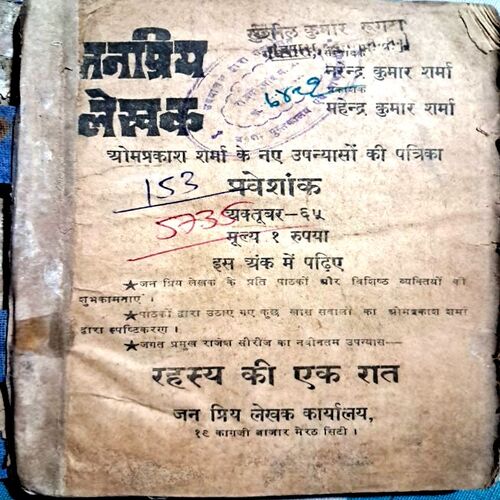 सुशील कुमार
जनप्रिय
लेखक
नरेन्द्र कुमार शर्मा
प्रकाशक
महेन्द्र कुमार शर्मा
6432
ओमप्रकाश शर्मा के नए उपन्यासों की पत्रिका
153
प्रवेशांक
5735
अक्तूबर–६५
मूल्य १ रुपया
इस अंक में पढ़िए
★जन प्रिय लेखक के प्रति पाठकों और विशिष्ट व्यक्तियों की
शुभकामनाएं ।
★पाठकों द्वारा उठाए गए कुछ खास सवालों का ओमप्रकाश शर्मा
द्वारा स्पष्टिकरण ।
★जगत प्रमुख राजेश सीरीज का नवीनतम उपन्यास—
रहस्य की एक रात
जन प्रिय लेखक कार्यालय,
१९ कागजी बाजार मेरठ सिटी ।